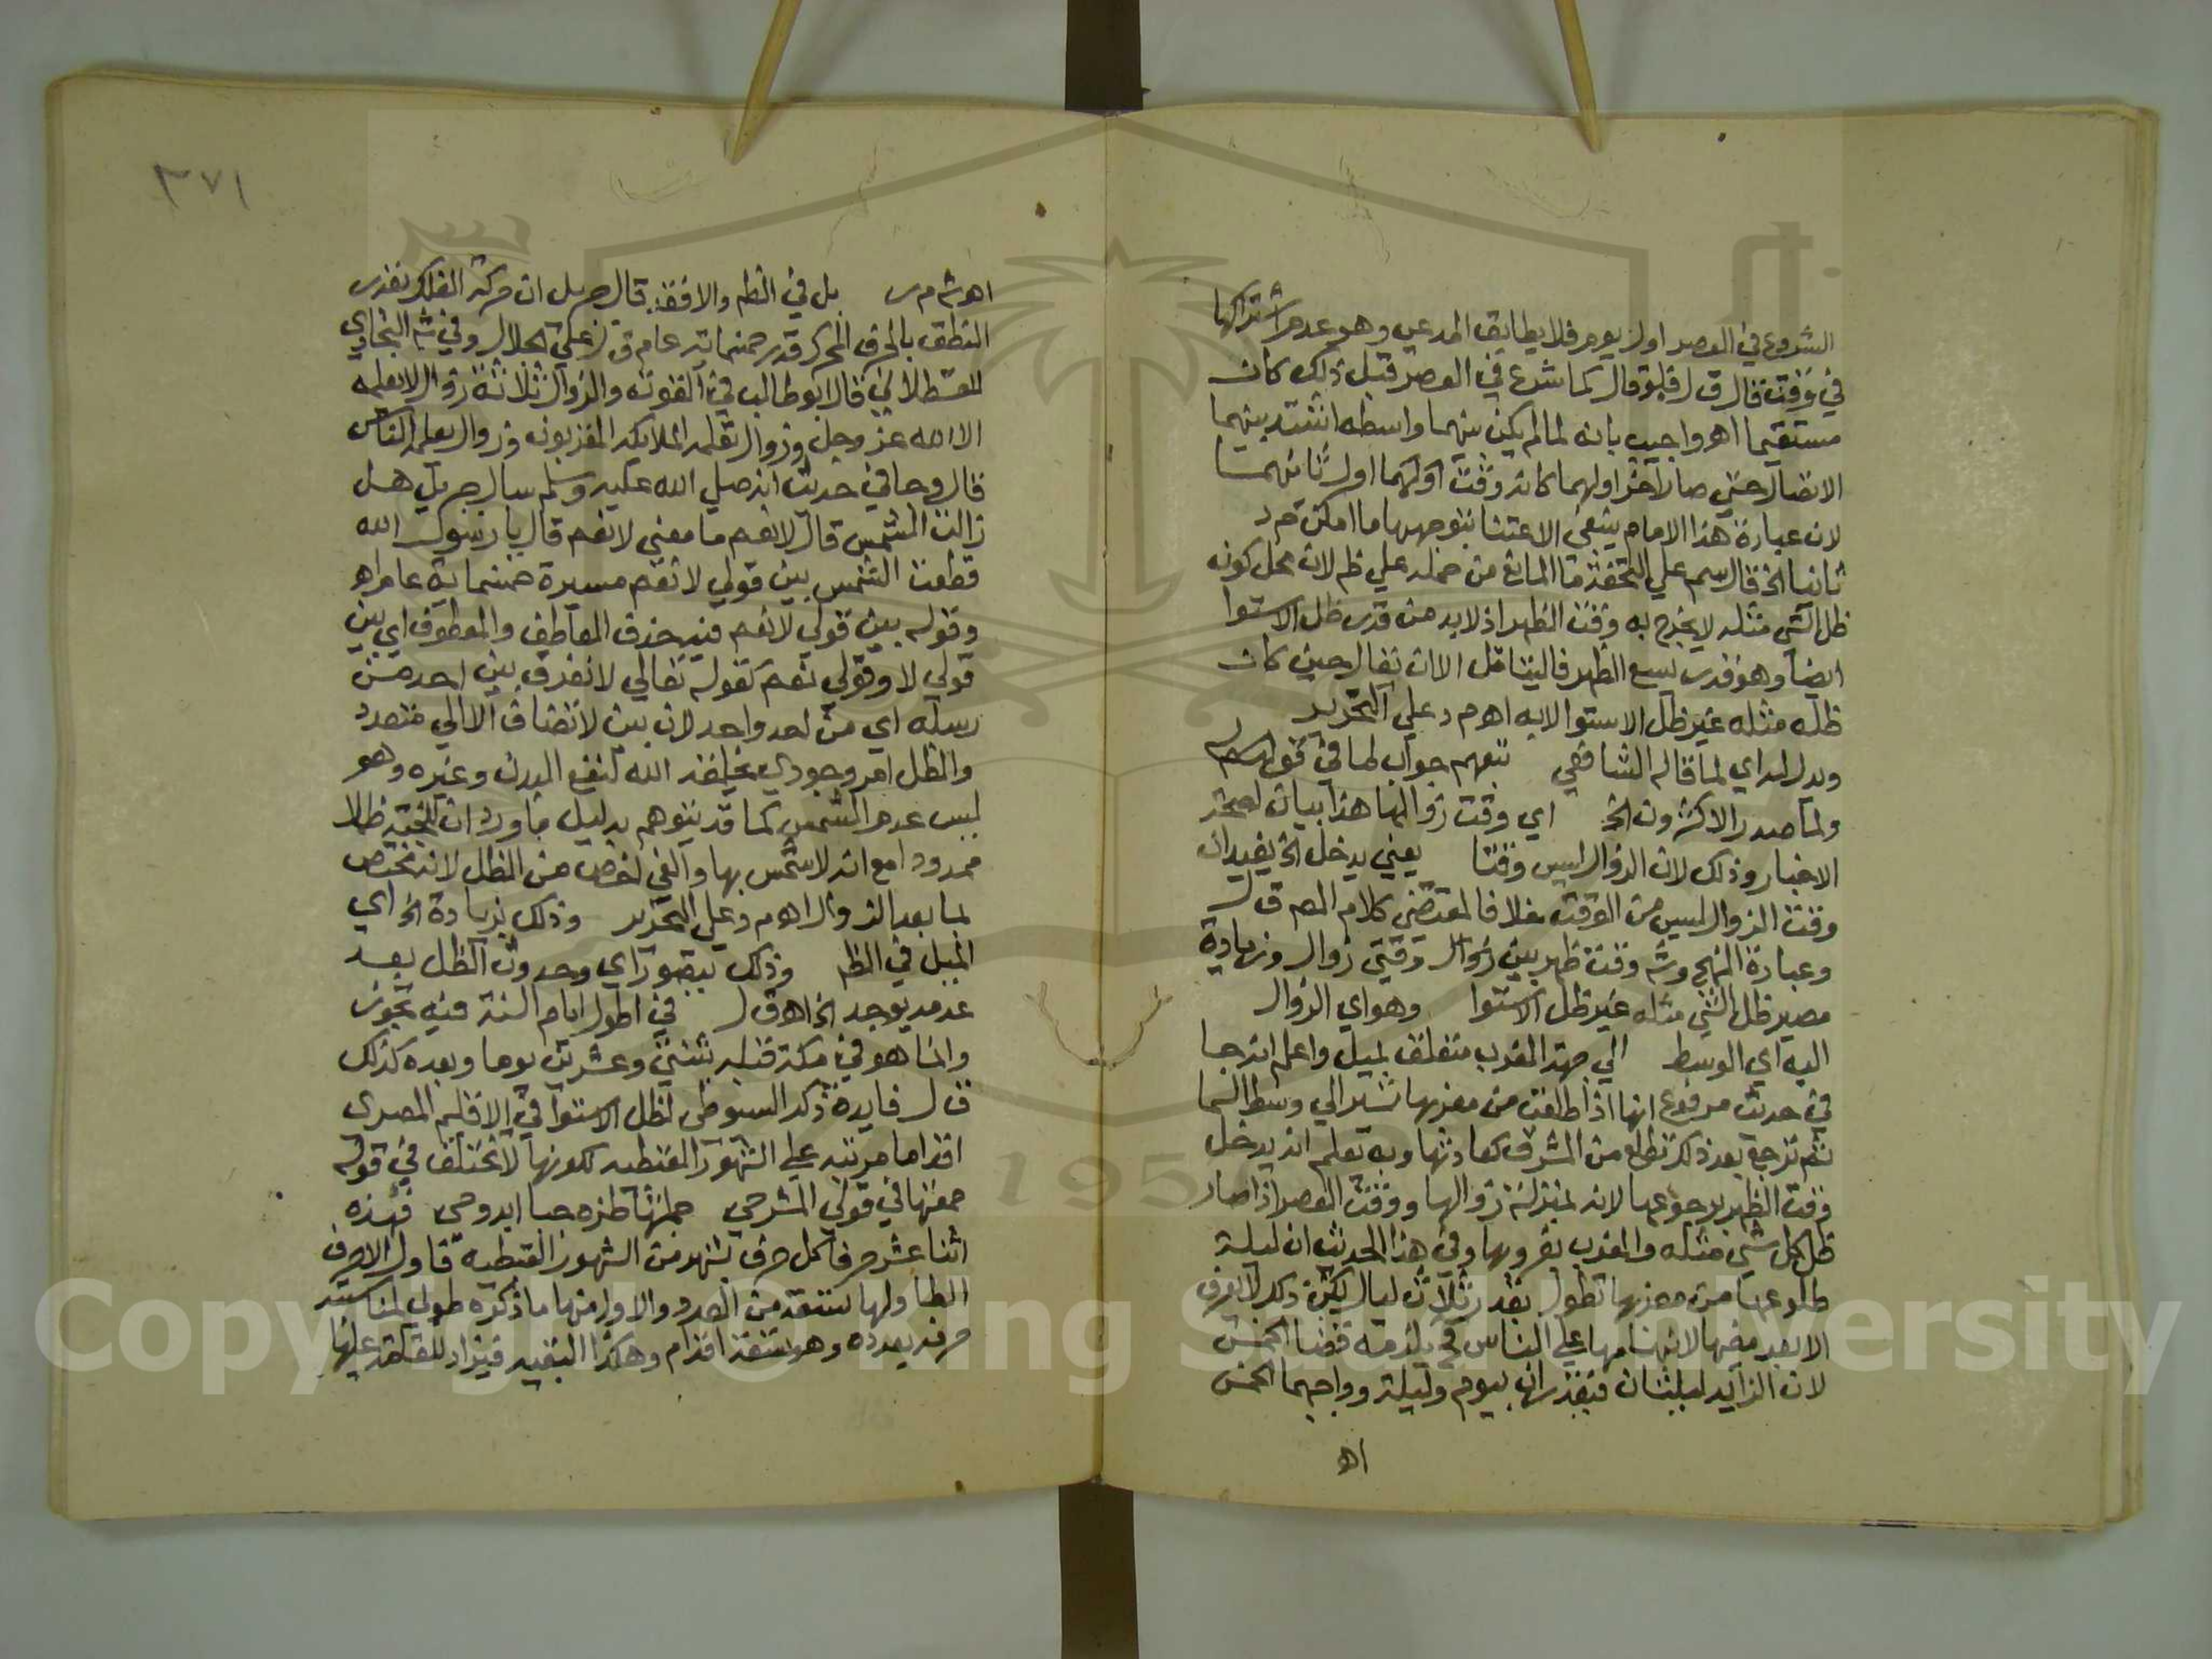 الشروع في العصر اول يوم فلا يطابق المدعي وهو عدم اشتراكهما
في وقت قال ق ل قبله وقال كما شرع في العصر قبل ذلك كان
مستقيما اهـ واجيب بانه لما لم يكن بينهما واسطه اشتد بينهما
الاتصال حتي صار آخر اولهما كانه وقت اولهما اول ثانيهما
لان عبارة هذا الامام ينبغي الاعتنا بتوجيهها ما امكن م د
ثانيا الخ قال سم علي التحفة ما المانع من حمله علي ظ لان محل كونه
ظل الشي مثله لا يخرج به وقت الظهر اذ لابد من قدر ظل الاستوا
ايضا وهو قدر يسع الظهر فاليتامل الا ان تقال حين كان
ظله مثله غير ظل الاستوا لا به اهـ م د علي التحرير
ويدل له اي لما قاله الشافعي تبعهم جواب لما في قوله
ولما صدر الاكثرون الخ اي وقت زوالها هذا بيان لصحة
الاخبار وذلك لان الزوال ليس وقتا يعني يدخل الخ يفيد ان
وقت الزوال ليس من الوقت خلافا لمقتضي كلام المص ق ل
وعبارة المنهج وشه وقت ظهر بين زوال وقتي زوال وزيادة
مصير ظل الشي مثله غير ظل الاستوا وهو اي الزوال
اليه اي الوسط الي جهة المغرب متعلق بميل واعلم انه جا
في حديث مرفوع انها اذا طلعت من مغربها تسير الي وسط السما
ثم ترجع بعد ذلك تطلع من المشرق كعادتها وبه تعلم انه يدخل
وقت الظهر برجوعها لانه بمنزلة زوالها ووقت العصر اذا صار
ظل كل شي مثله والمغرب بغروبها وفي هذا الحديث ان ليلة
طلوعها من مغربها تطول بقدر ثلاث ليال لكن ذلك لا يعرف
الا بعد مضيها لانبهامها علي الناس فح يلزمه قضا الخمس
لان الزايد ليلتان فيقدران بيوم وليلة وواجبهما الخمس
اهـ
٣٧١
اهـ ش م ر بل في الظهر والافقد قال جبريل ان حركة الفلك بقدر
النطق بالحرف المحرك قدر خمسمائة عام ق ل علي الجلال وفي شه البخاري
للقسطلاني قال ابو طالب في القوت والزوال ثلاثة زوال لا يعلمه
الا الله عز وجل وزوال تعلمه الملائكة المقربون وزوال يعلمه الناس
قال وجا في حديث انه صلي الله عليه وسلم سال جبريل هل
زالت الشمس قال لا نعم ما معني لا نعم قال يا رسول الله
قطعت الشمس بين قولي لا نعم مسيرة خمسماية عام اهـ
وقوله بين قولي لا نعم فيه حذف العاطف والمعطوف اي بين
قولي لا وقولي نعم كقوله تعالي لا نفرق بين احد من
رسله اي من احد واحد لان بين لا تضاف الا الي متعدد
والظل امر وجودي يخلقه الله لنفع البدن وغيره وهو
ليس عدم الشمس كما قد يتوهم بدليل ما ورد ان للجنة ظلا
ممدودا مع انه لا شمس بها والفي اخص من الظل لانه مختص
بما بعد الزوال اهـ م د علي التحرير وذلك بزيادة الخ اي
الميل في الظهر وذلك يتصور اي وحدوث الظل بعد
عدمه يوجد الخ اهـ ق ل في اطول ايام السنة فيه تجوز
وانما هو في مكة قبله بستة وعشرين يوما وبعده كذلك
ق ل فايدة ذكر السيوطي لظل الاستوا في الاقليم المصري
اقداما مرتبه علي الشهور القبطيه لكونها لا تختلف في قوله
جمعتها في قولي المشرحي جملتها طزه جبا ابدوحي فهذه
اثنا عشر حرفا كل حرف لشهر من الشهور القبطيه فاول الاحرف
الطا ولها تسعة من العدد والاول منها ما ذكره طولي
حرفه بعدده وهو تسعة اقدام وهكذا البقيه فيزاد للقامة عليها